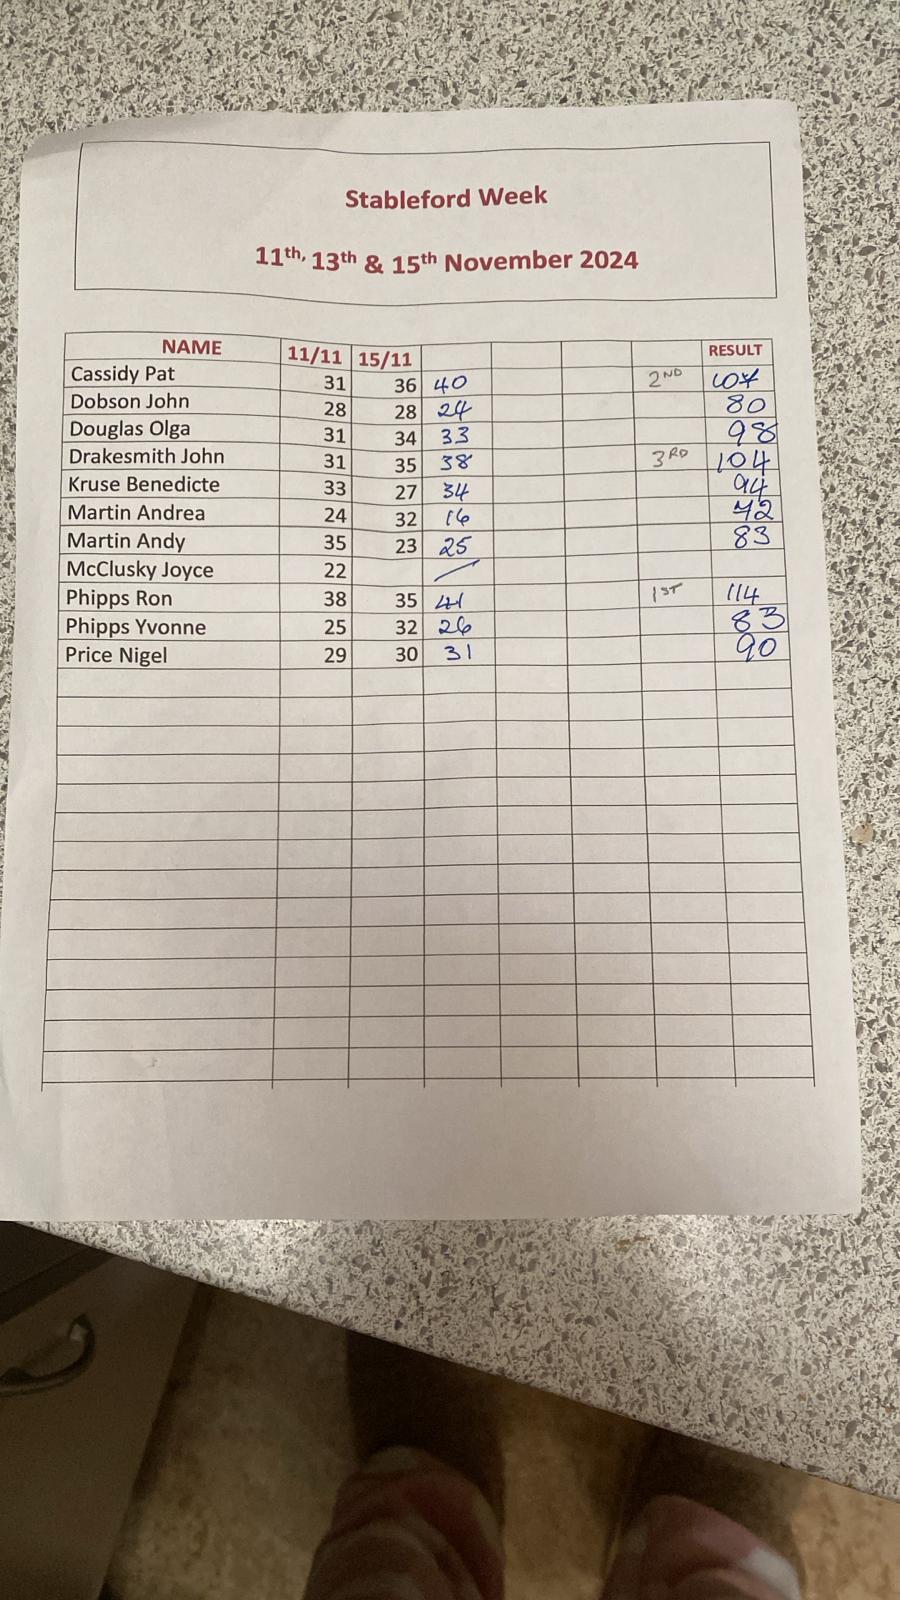 Stableford Week
11th, 13th & 15th November 2024
NAME 11/11 15/11 RESULT
Cassidy Pat 31 36 40 2ND 107
Dobson John 28 28 24 80
Douglas Olga 31 34 33 98
Drakesmith John 31 35 38 3RD 104
Kruse Benedicte 33 27 34 94
Martin Andrea 24 32 16 72
Martin Andy 35 23 25 83
McClusky Joyce 22 /
Phipps Ron 38 35 41 1ST 114
Phipps Yvonne 25 32 26 83
Price Nigel 29 30 31 90